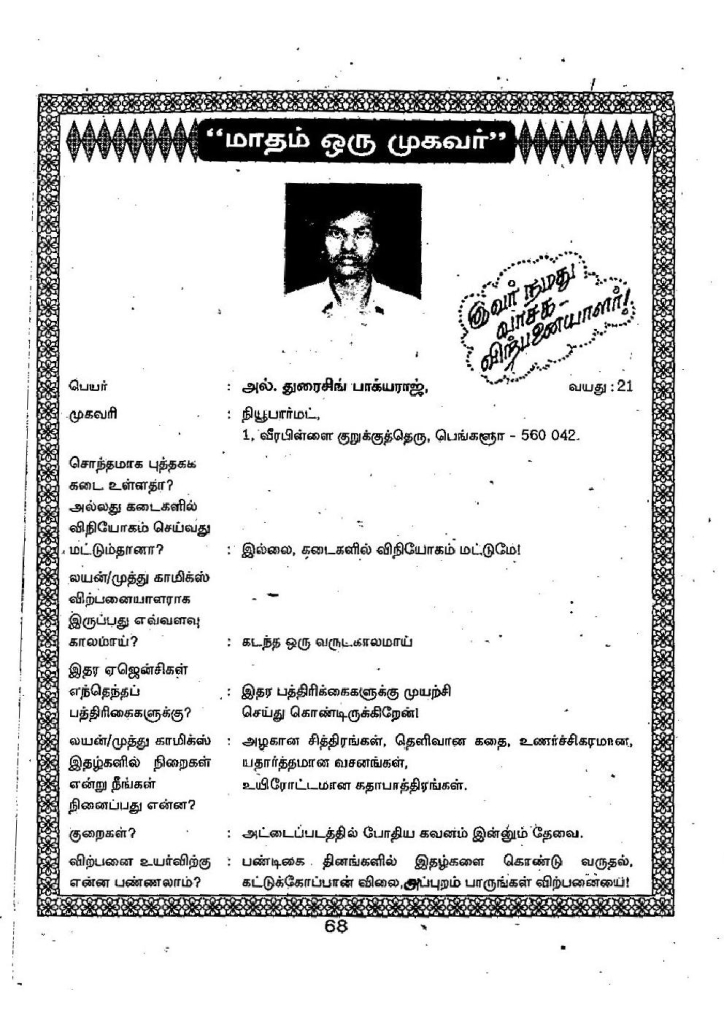 “மாதம் ஒரு முகவர்”
இவர் நமது
வாசக -
விற்பனையாளர்!
பெயர் : அல். துரைசிங் பாக்யராஜ், வயது : 21
முகவரி : நியூபார்மட்,
1, வீரபிள்ளை குறுக்குத்தெரு, பெங்களூர் - 560 042.
சொந்தமாக புத்தகக்
கடை உள்ளதா?
அல்லது கடைகளில்
விநியோகம் செய்வது
மட்டும்தானா? : இல்லை, கடைகளில் விநியோகம் மட்டுமே!
லயன்/முத்து காமிக்ஸ்
விற்பனையாளராக
இருப்பது எவ்வளவு
காலமாய்? : கடந்த ஒரு வருடகாலமாய்
இதர ஏஜென்சிகள்
எந்தெந்தப் : இதர பத்திரிக்கைகளுக்கு முயற்சி
பத்திரிகைகளுக்கு? செய்து கொண்டிருக்கிறேன்!
லயன்/முத்து காமிக்ஸ் : அழகான சித்திரங்கள், தெளிவான கதை, உணர்ச்சிகரமான,
இதழ்களில் நிறைகள் யதார்த்தமான வசனங்கள்,
என்று நீங்கள் உயிரோட்டமான கதாபாத்திரங்கள்.
நினைப்பது என்ன?
குறைகள்? : அட்டைப்படத்தில் போதிய கவனம் இன்னும் தேவை.
விற்பனை உயர்விற்கு : பண்டிகை தினங்களில் இதழ்களை கொண்டு வருதல்,
என்ன பண்ணலாம்? கட்டுக்கோப்பான் விலை,அப்புறம் பாருங்கள் விற்பனையை!
68